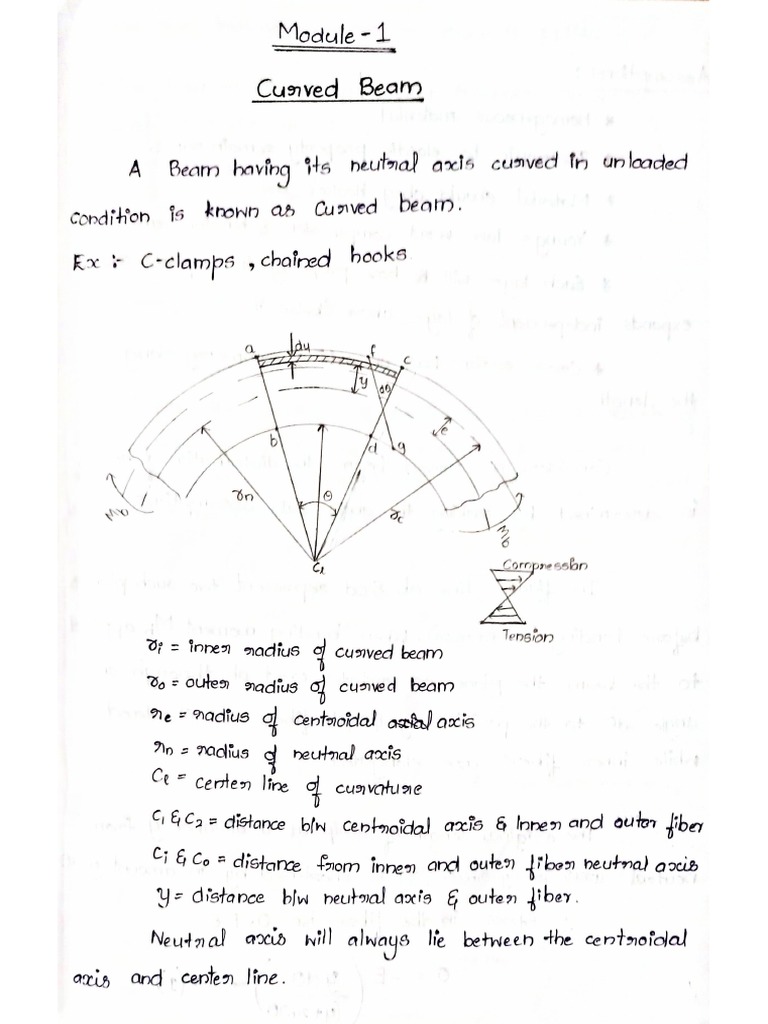 Module-1
Curved Beam
A Beam having its neutral axis curved in unloaded
condition is known as curved beam.
Ex :- C-clamps, chained hooks.
a
du
f
c
y
dθ
b
d
g
e
rn
θ
rc
Mb
Mb
Cl
Compression
Tension
ri = inner radius of curved beam
ro = outer radius of curved beam
re = radius of centroidal axial axis
rn = radius of neutral axis
Cl = center line of curvature
C1 & C2 = distance b/w centroidal axis & Inner and outer fiber
Ci & Co = distance from inner and outer fiber neutral axis
y = distance b/w neutral axis & outer fiber.
Neutral axis will always lie between the centroidal
axis and center line.